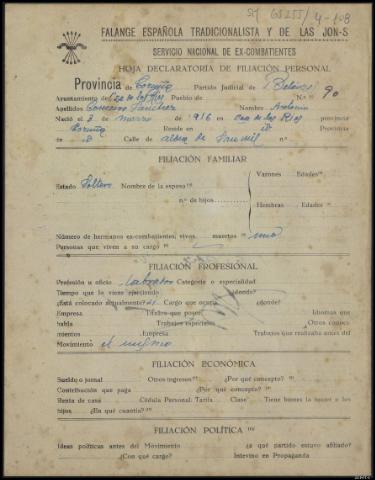 FALANGE ESPAÑOLA TRADICIONALISTA Y DE LAS JON-S
SERVICIO NACIONAL DE EX-COMBATIENTES
HOJA DECLARATORIA DE FILIACIÓN PERSONAL
Provincia de Coruña Partido Judicial de Betanzos
Ayuntamiento de Oza de los Rios Pueblo de N.º 90
Apellidos Sánchez Nombre Antonio
Nació el 3 de Marzo de 1916 en Oza de los Rios provincia
Coruña Reside en id Provincia
de id Calle de aldea de
FILIACIÓN FAMILIAR
Estado Soltero Nombre de la esposa
Varones Edades
n.º de hijos
Hembras Edades
Número de hermanos ex-combatientes, vivos, muertos uno
Personas que viven a su cargo
FILIACIÓN PROFESIONAL
Profesión u oficio Labrador Categoría o especialidad
Tiempo que lo viene ejerciendo ¿dónde?
¿Está colocado actualmente? si Cargo que ocupa ¿dónde?
Empresa Títulos que posee Idiomas que
habla Trabajos especiales Otros conoci-
mientos Empresa Trabajos que realizaba antes del
Movimiento el mismo
FILIACIÓN ECONÓMICA
Sueldo o jornal Otros ingresos ¿Por qué concepto?
Contribución que paga ¿Por qué concepto?
Renta de casa Cédula Personal: Tarifa Clase Tiene bienes la mujer o los
hijos ¿En qué cuantía?
FILIACIÓN POLÍTICA
Ideas políticas antes del Movimiento ¿a qué partido estuvo afiliado?
¿Con qué cargo? Intervino en Propaganda